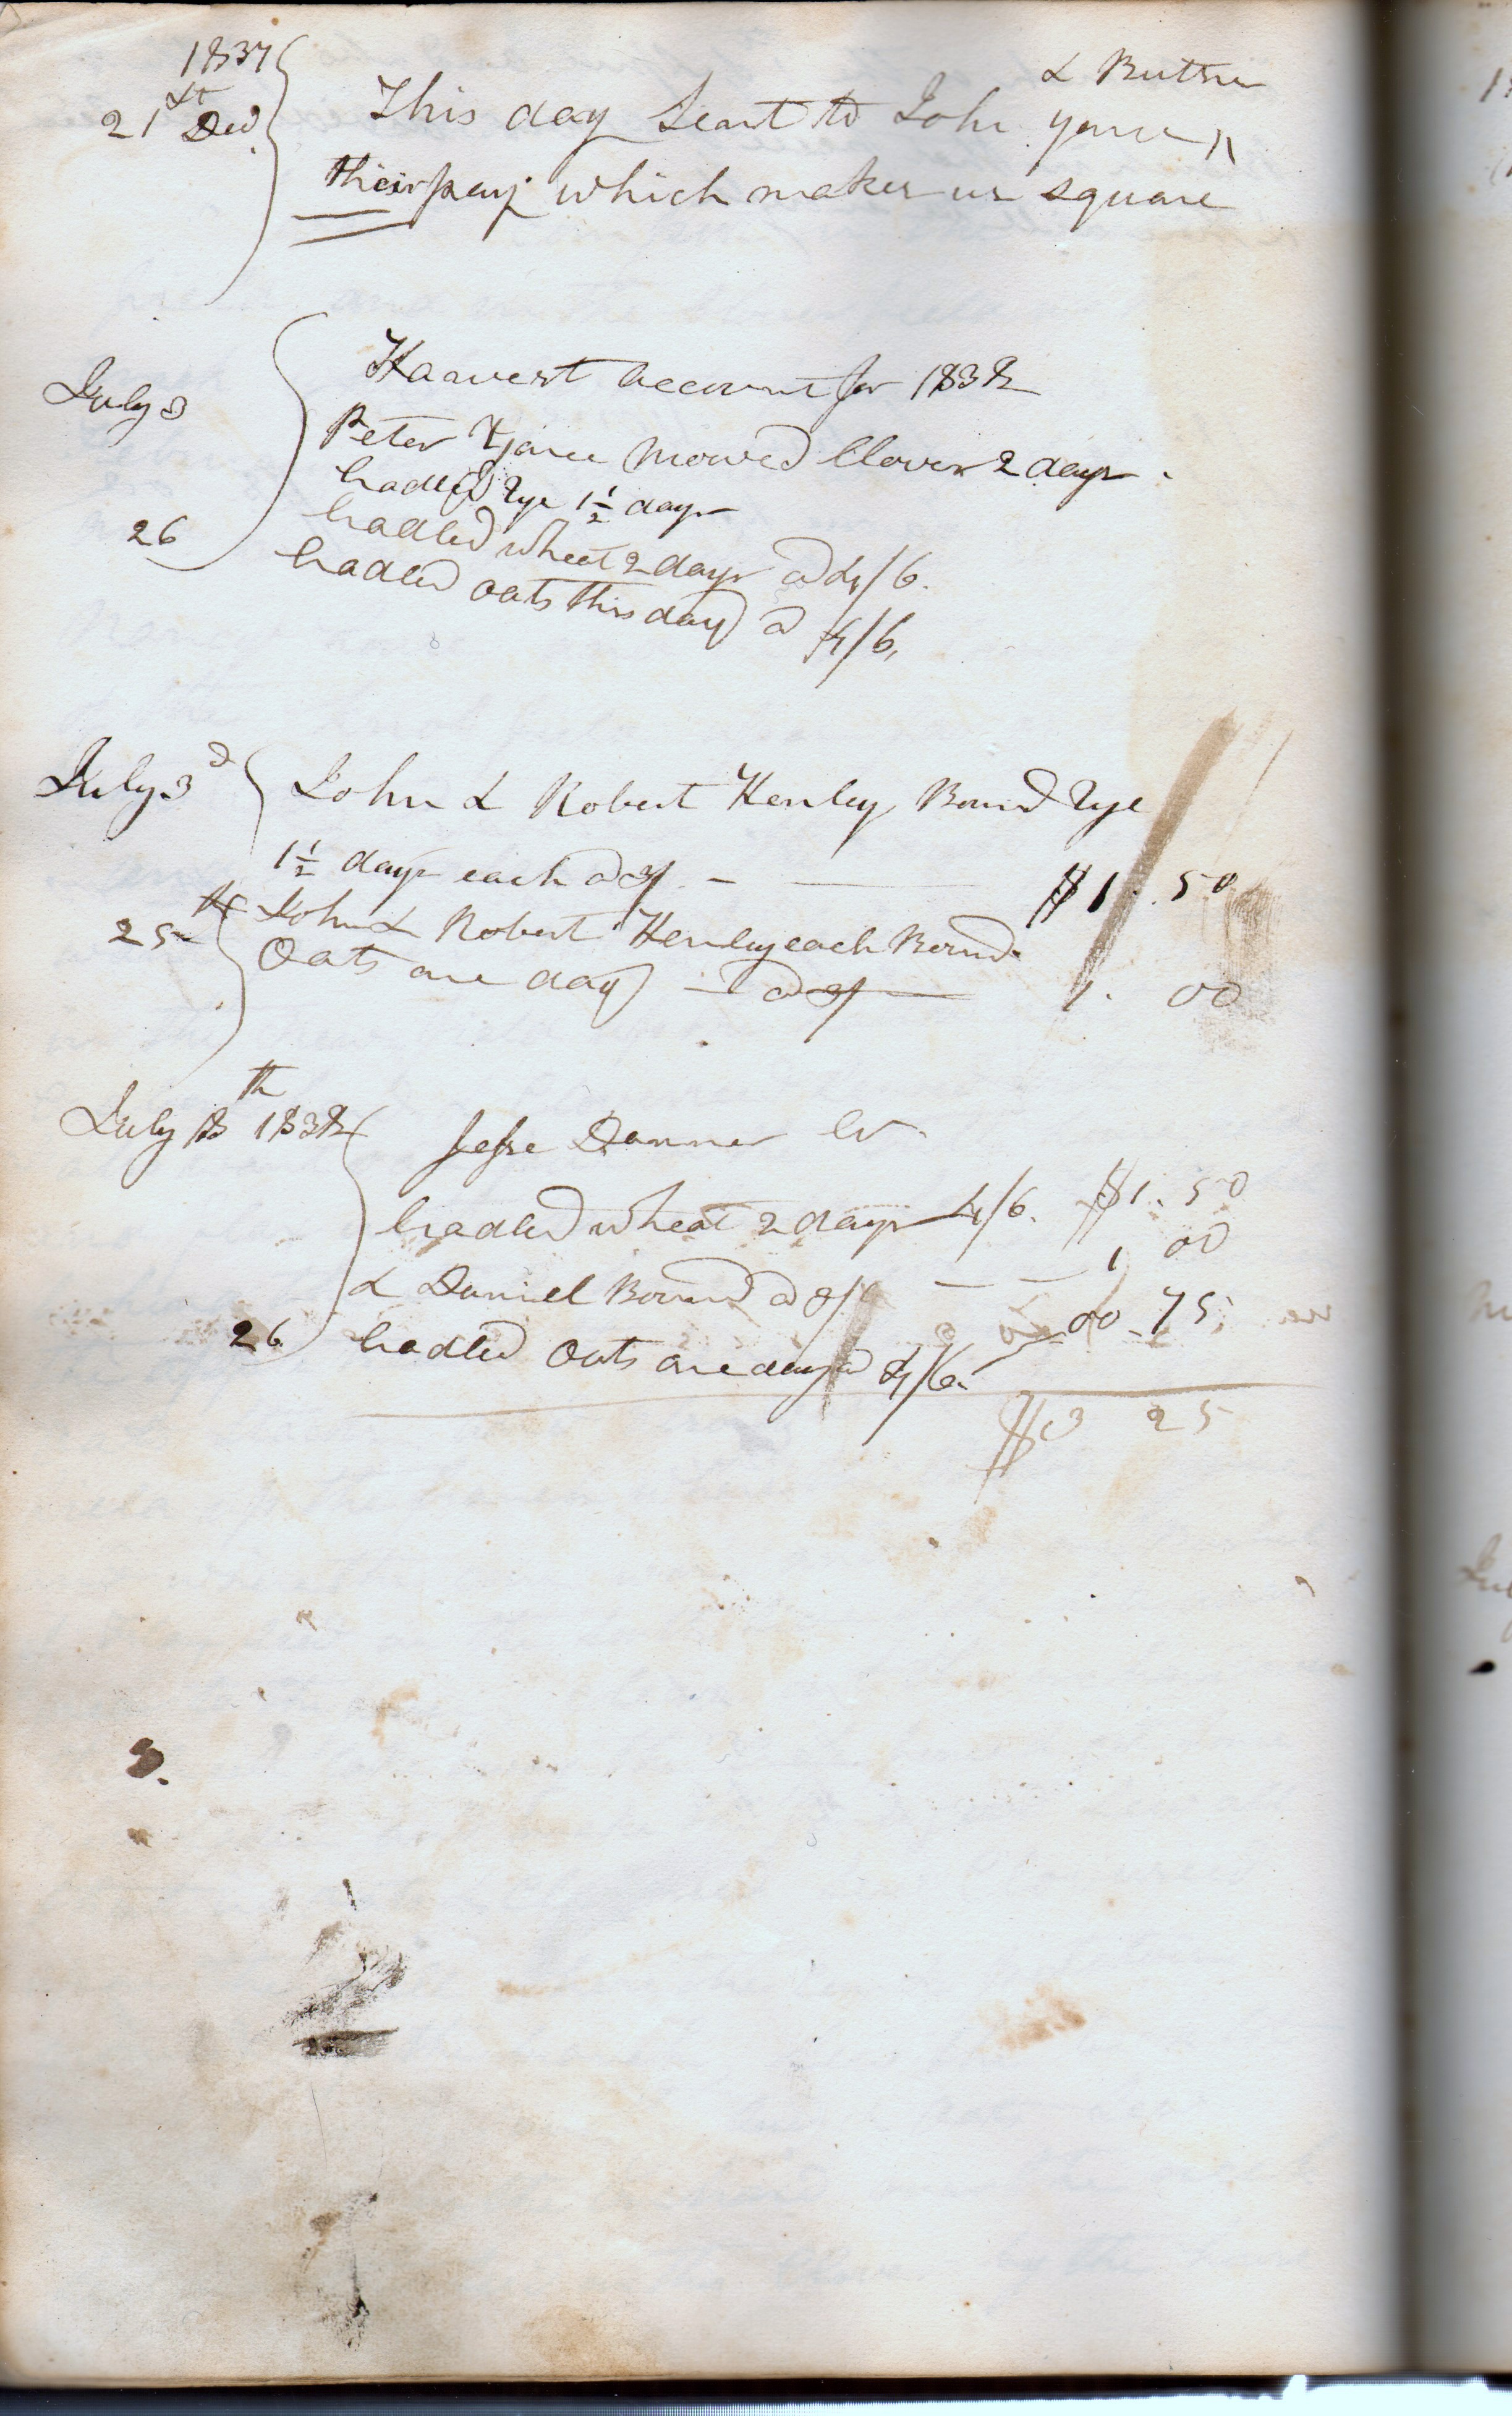 1837
& Butner
21st Decr. This day Sent to John Yance
their pay which makes us square
Haarvest account for 1838
July 3
Peter Yance Mowed Clover 2 days
Cradled Rye 1 1/2 days
Cradled wheat 2 days @ 4/6.
26 Cradled oats this day @ 4/6,
July 3d John & Robert Henley Bound Rye
1 1/2 days each @ 3/. - $1.50
25th John & Robert Henley each Bound
Oats one day - @ 3/ 1. 00
July 18th 1838 Jesse Danner Cr.
Cradled wheat 2 days 4/6. $1.50
& Daniel Bound @ 3/ - - 1 00
26 Cradled Oats one day @ 4/6. 00-75
$3 25